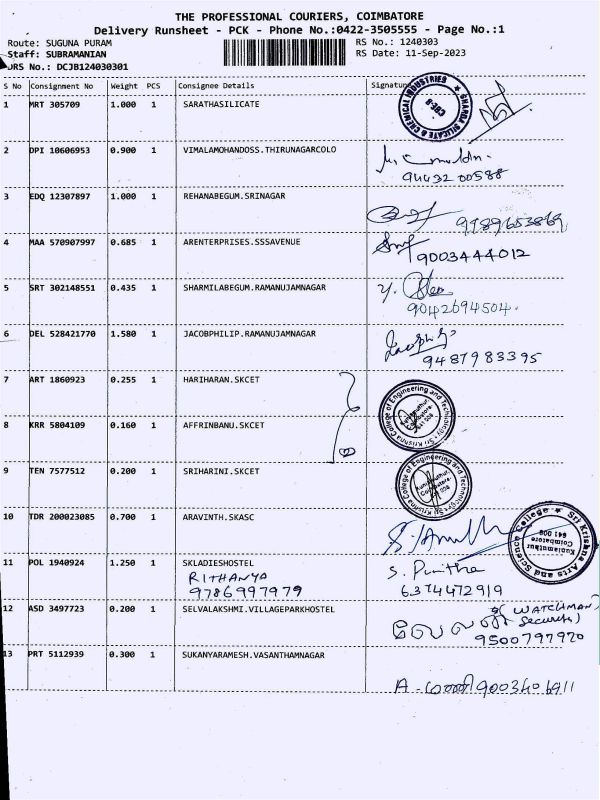 THE PROFESSIONAL COURIERS, COIMBATORE
Delivery Runsheet - PCK - Phone No.:0422-3505555 - Page No.:1
Route: SUGUNA PURAM RS No.: 1240303
Staff: SUBRAMANIAN RS Date: 11-Sep-2023
DRS No.: DCJB124030301
S No Consignment No Weight PCS Consignee Details Signatur
1 MRT 305709 1.000 1 SARATHASILICATE
SHARDA SILICATE & CHEMICAL INDUSTRIES ★ CBE-8
2 DPI 10606953 0.900 1 VIMALAMOHANDOSS.THIRUNAGARCOLO
94432 00588
3 EDQ 12307897 1.000 1 REHANABEGUM.SRINAGAR
9989653869
4 MAA 570907997 0.685 1 ARENTERPRISES.SSSAVENUE
9003444012
5 SRT 302148551 0.435 1 SHARMILABEGUM.RAMANUJAMNAGAR
9042694504.
6 DEL 528421770 1.580 1 JACOBPHILIP.RAMANUJAMNAGAR
9487983395
7 ART 1860923 0.255 1 HARIHARAN.SKCET
Sri Krishna College of Engineering and Technology
8 KRR 5804109 0.160 1 AFFRINBANU.SKCET
9 TEN 7577512 0.200 1 SRIHARINI.SKCET
Sri Krishna College of Engineering and Technology
10 TDR 200023085 0.700 1 ARAVINTH.SKASC
Sri Krishna Arts and Science College ★ Kuniamuthur Coimbatore 641 008
11 POL 1940924 1.250 1 SKLADIESHOSTEL
RITHANYA S. Punitha
9786997979 6374472919
12 ASD 3497723 0.200 1 SELVALAKSHMI.VILLAGEPARKHOSTEL
(WATCHMAN)
வேலன் Security)
9500797920
13 PRT 5112939 0.300 1 SUKANYARAMESH.VASANTHAMNAGAR
A -